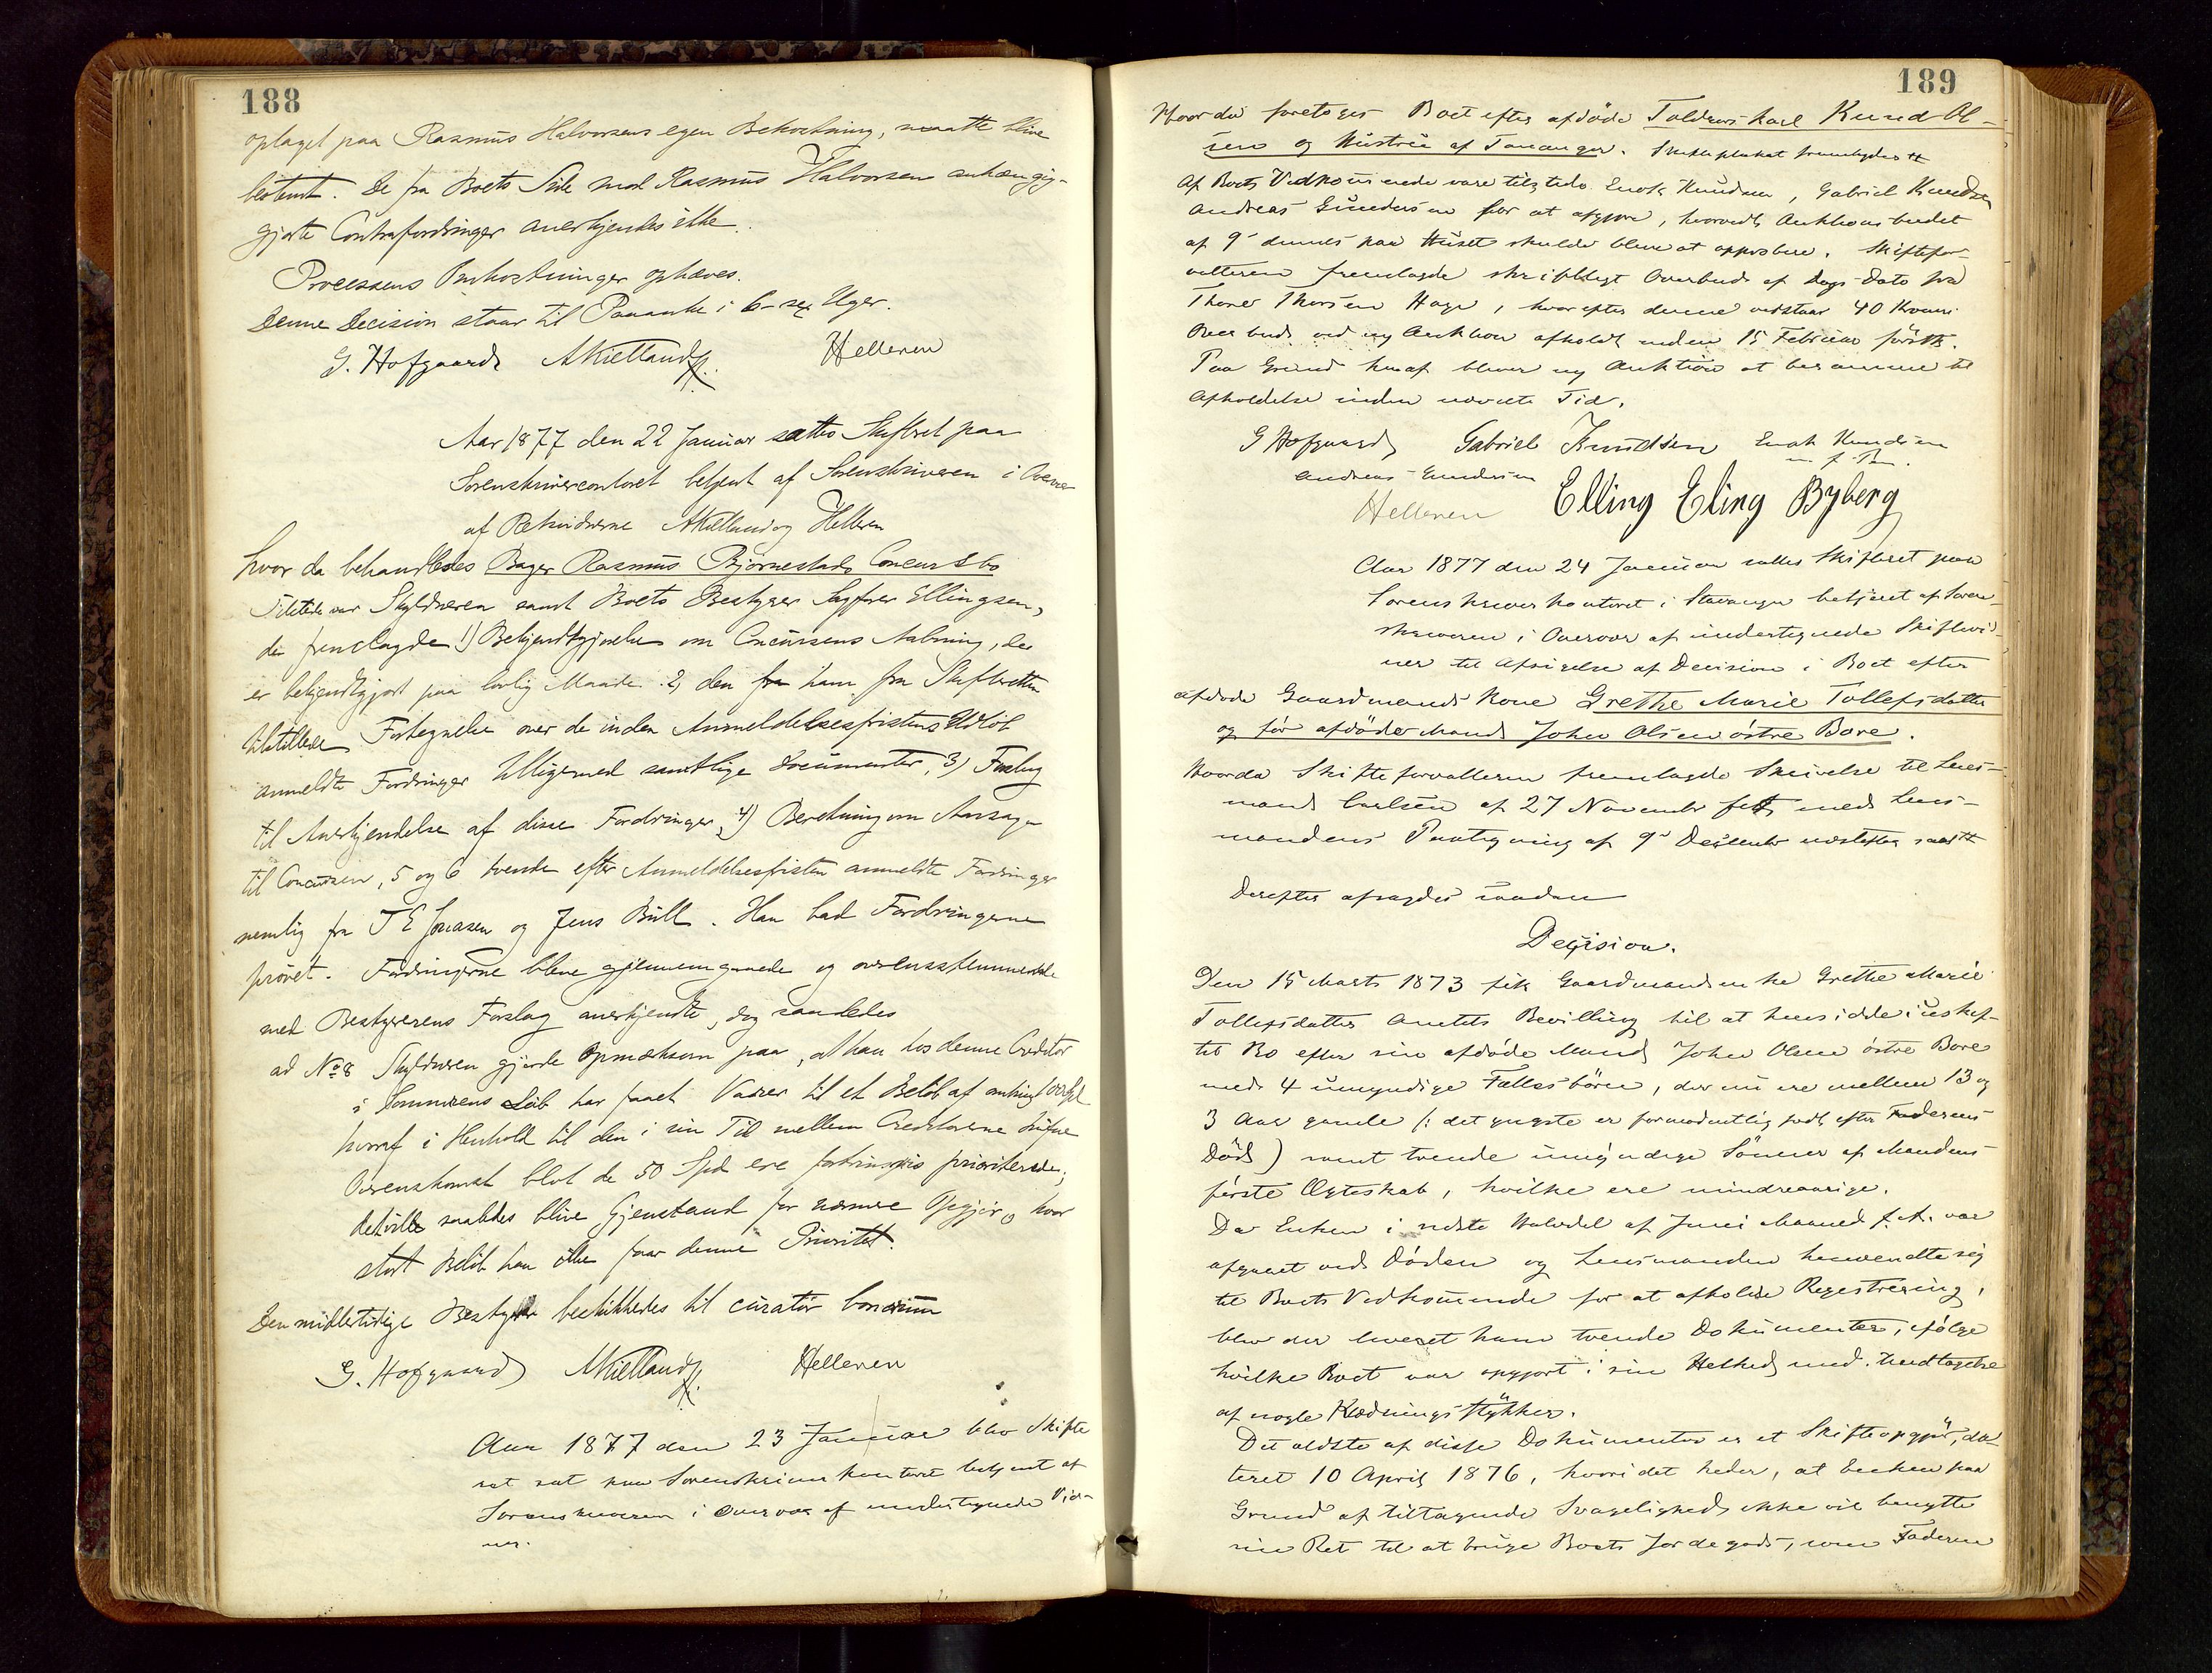 188
optaget paa Rasmus Halvorsens egen Bekostning, maatte blive
bestemt. De fra Boets Side mod Rasmus Halvorsen anhængig-
gjorte Contrafordringer anerkjendes ikke.
Processens Omkostninger ophæves.
Denne Decision staar til Paaanke i 6 - sex Uger.
G. Hofgaard AKielland Helleren
Aar 1877 den 22 Januar sattes Skifteret paa
Sorenskrivercontoret betjent af Sorenskriveren i Overvær
af Retsvidnerne AKielland og Helleren
hvor da behandledes Bager Rasmus Bjørnestads Concursbo
Tilstede var Skyldneren samt Boets Bestyrer Sagfører Ellingsen,
der fremlagde 1) Bekjendtgjørelse om Concursens Aabning, der
er bekjendtgjort paa lovlig Maade. 2, den fra ham fra Skifteretten
tilstillede Fortegnelse over de inden Anmeldelsesfristens Udløb
anmeldte Fordringer tilligemed samtlige Documenter, 3) Forslag
til Anerkjendelse af disse Fordringer, 4) Beretning om Aarsagen
til Concursen, 5 og 6 tvende efter Anmeldelsesfristen anmeldte Fordringer
nemlig fra T E Jonasen og Jens Bull. Han bad Fordringerne
prøvet. Fordringerne bleve gjennemgaaede og overensstemmende
med Bestyrerens Forslag anerkjendte, dog saaledes
ad No 8 Skyldneren gjorde opmærksom paa, at han hos denne Creditor
i Sommerens Løb har faaet Varer til et Beløb af omkring
hvoraf i Henhold til den i sin Tid mellem Creditorerne
Overenskomst blot de 50 Spd ere prioriterede;
det vilde saaledes blive Gjenstand for nærmere Opgjør, hvor
stort Beløb han ikke faar denne Prioritet.
Den midlertidige Bestyrer beskikkedes til curator bonorum
G. Hofgaard AKielland Helleren
Aar 1877 den 23 Januar blev Skifte
ret sat paa Sorenskriverkontoret betjent af
Sorenskriveren i Overvær af undertegnede Vid-
ner.
189
Hvor da foretoges Boet efter afdøde Toldrorskarl Knud Ol-
sen og Hustru af Tananger. Skifteplakat fremlagdes
Af Boets Vedkommende vare tilstede Enok Knudsen, Gabriel Knudsen
Andreas Gundersen for at afgjøre, hvorvidt Auktionsbudet
af 9 dennes paa Huset skulde blive at approbere. Skiftefor-
valteren fremlagde skriftligt Overbud af Dags Dato fra
Thorsen Hage, hvorefter denne vedstaar 40 Kroners
Overbud ved ny Auktion afholdt inden 15 Februar førstk.
Paa Grund heraf bliver ny Auktion at beramme til
Afholdelse inden nævnte Tid.
G Hofgaard Gabriel Knudsen Enok Knudsen
Andreas Gundersen m. f. P.
Helleren Elling Eling Byberg
Aar 1877 den 24 Januar sattes Skifteret paa
Sorenskriverkontoret i Stavanger betjent af Soren-
skriveren i Overvær af undertegnede Skiftevid-
ner til Afsigelse af Decision i Boet efter
afdøde Gaardmands Kone Grethe Marie Tollefsdatter
og før afdøde Mand John Olsen østre Bore.
Hvorda Skifteforvalteren fremlagde Skrivelse til Lens-
mand Carlsen af 27 November f. A. med Lens-
mandens Paategning af 9 December næstefter
Derefter afsagdes saadan
Decision.
Den 15 Marts 1873 fik Gaardmandsenke Grethe Marie
Tollefsdatter Amtets Bevilling til at hensidde i uskif-
tet Bo efter sin afdøde Mand John Olsen østre Bore
med 4 umyndige Fællesbörn, der nu ere mellem 13 og
3 Aar gamle (: det yngste er formodentlig født efter Faderens
Død) samt tvende umyndige Sönner af Mandens
første Ægteskab, hvilke ere mindreaarige.
Da Enken i sidste Halvdel af Juni Maaned f. A. var
afgaaet ved Døden og Lensmanden henvendte sig
til Boets Vedkommende for at afholde Registrering,
blev der leveret ham tvende Dokumenter, ifölge
hvilke Boet var opgjort i sin Helhed med Undtagelse
af nogle Klædningsstykker.
Det ældste af disse Dokumenter er et Skifteopgjør, da-
teret 10 April 1876, hvori det heder, at Enken paa
Grund af tiltagende Svagelighed ikke vil benytte
sin Ret til at bruge Boets Jordegods, som Faderen